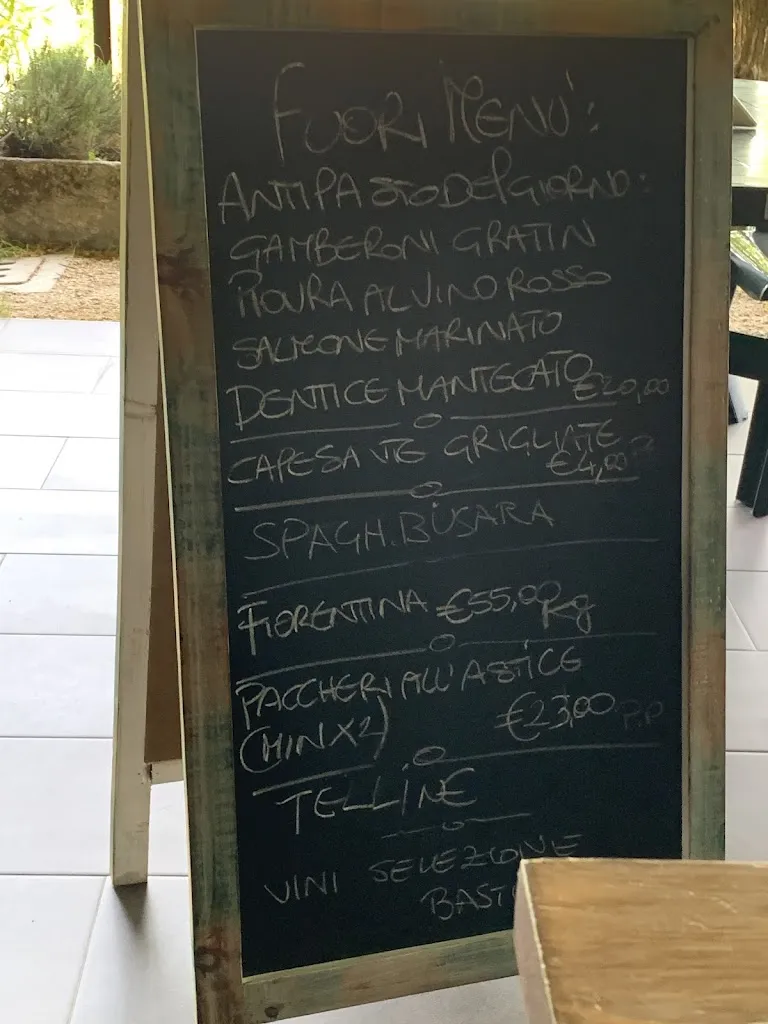 FUORI MENÙ:
ANTIPASTO DEL GIORNO:
GAMBERONI GRATIN
PIOVRA AL VINO ROSSO
SALMONE MARINATO
DENTICE MANTECATO €20,00
CAPESANTE GRIGLIATE
€4,00
SPAGH. BUSARA
FIORENTINA €55,00 Kg
PACCHERI ALL'ASTICE
(MIN X 2) €23,00 P.P
TELLINE
VINI SELEZIONE